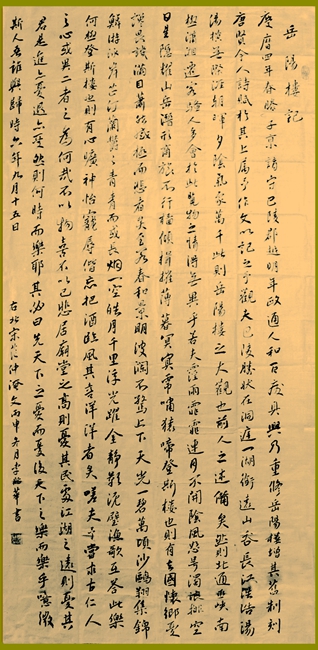 岳陽樓記
慶曆四年春滕子京謫守巴陵郡越明年政通人和百廢具興乃重修岳陽樓增其舊制刻
唐賢今人詩賦於其上屬予作文以記之予觀夫巴陵勝狀在洞庭一湖銜遠山吞長江浩浩湯
湯橫無際涯朝暉夕陰氣象萬千此則岳陽樓之大觀也前人之述備矣然則北通巫峽南
極瀟湘遷客騷人多會於此覽物之情得無異乎若夫霪雨霏霏連月不開陰風怒號濁浪排空
日星隱耀山岳潛形商旅不行檣傾楫摧薄暮冥冥虎嘯猿啼登斯樓也則有去國懷鄉憂
讒畏譏滿目蕭然感極而悲者矣至若春和景明波瀾不驚上下天光一碧萬頃沙鷗翔集錦
鱗游泳岸芷汀蘭鬱鬱青青而或長烟一空皓月千里浮光躍金靜影沉璧漁歌互答此樂
何極登斯樓也則有心曠神怡寵辱偕忘把酒臨風其喜洋洋者矣嗟夫予嘗求古仁人
之心或異二者之為何哉不以物喜不以己悲居廟堂之高則憂其民處江湖之遠則憂其
君是進亦憂退亦憂然則何時而樂耶其必曰先天下之憂而憂後天下之樂而樂乎噫微
斯人吾誰與歸時六年九月十五日
右北宋范仲淹文丙申六月李華書